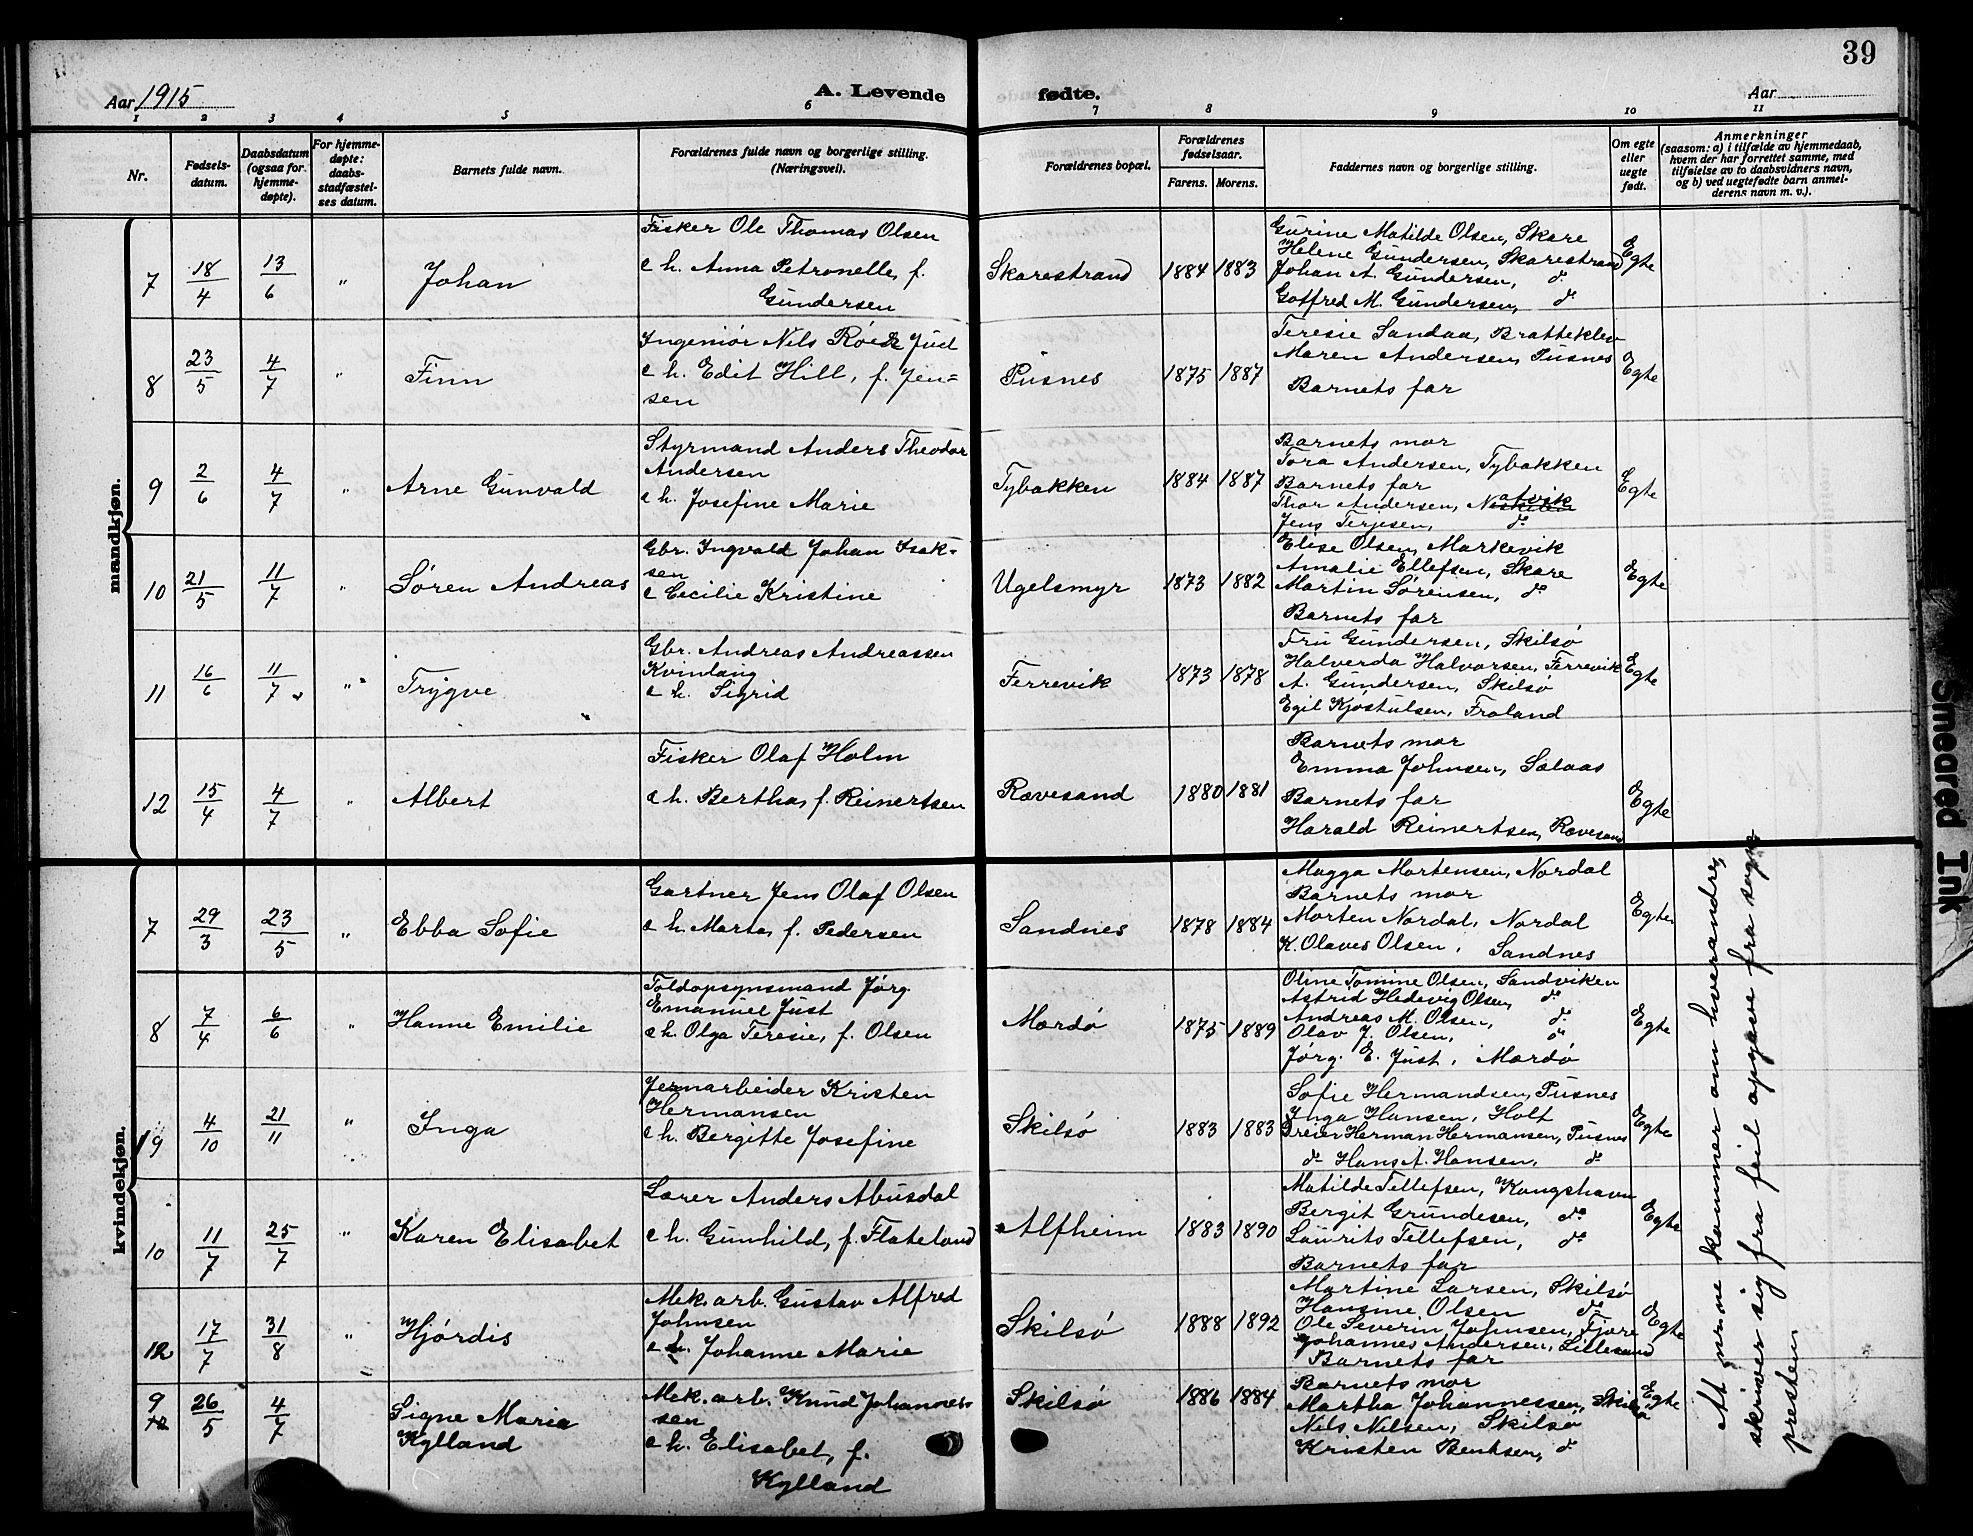 39
Aar 1915
A. Levende fødte.
Aar
1 2 3 4 5 6 7 8 9 10 11
Nr.
Fødsels-
datum.
Daabsdatum
(ogsaa for
hjemme-
døpte).
For hjemme-
døpte:
daabs-
stadfæstel-
ses datum.
Barnets fulde navn.
Forældrenes fulde navn og borgerlige stilling.
(Næringsvei).
Forældrenes bopæl.
Forældrenes
fødselsaar.
Farens. Morens.
Faddernes navn og borgerlige stilling.
Om egte
eller
uegte
født.
Anmerkninger
(saasom: a) i tilfælde av hjemmedaab,
hvem der har forrettet samme, med
tilføielse av to daabsvidners navn,
og b) ved uegtefødte barn anmel-
derens navn m. v.).
mandkjøn.
7 18/4 13/6 " Johan
Fisker Ole Thomas Olsen
e h. Anna Petronelle, f.
Gundersen
Skarestrand 1884 1883
Gurine Matilde Olsen, Skare
Helene Gundersen, Skarestrand
Johan A. Gundersen, do
Gotfred M. Gundersen, do
Egte
8 23/5 4/7 " Finn
Ingeniør Nils Juel
e h. Edit Hill, f. Jen=
sen
Pusnes 1875 1887
Teresie Sandaa, Bratteklev
Maren Andersen, Pusnes
Barnets far
Egte
9 2/6 4/7 " Arne Gunvald
Styrmand Anders Theodor
Andersen
e h. Josefine Marie
Tybakken 1884 1887
Barnets mor
Tora Andersen, Tybakken
Barnets far
Thor Andersen,
Jens Terjesen, do
Egte
10 21/5 11/7 " Søren Andreas
Gbr. Ingvald Johan Isak=
sen
e Cecilie Kristine
Ugelsmyr 1873 1882
Elise Olsen, Markevik
Amalie Ellefsen, Skare
Martin Sørensen, do
Barnets far
Egte
11 16/6 11/7 " Trygve
Gbr. Andreas Andreassen
Kvinlaug
e h. Sigrid
Ferrevik 1873 1878
Fru Gundersen, Skilsø
Halverda Halvorsen, Ferrevik
A. Gundersen, Skilsø
Egil Kjøstulsen, Froland
Egte
12 15/4 4/7 " Albert
Fisker Olaf Holm
e h. Bertha, f. Reinertsen
Rævesand 1880 1881
Barnets mor
Emma Johnsen, Salaas
Barnets far
Harald Reinertsen, Rævesand
Egte
kvindekjøn.
7 29/3 23/5 " Ebba Sofie
Gartner Jens Olaf Olsen
e h. Marta, f. Pedersen
Sandnes 1878 1884
Magga Mortensen, Nordal
Barnets mor
Morten Nordal, Nordal
K. Olaves Olsen, Sandnes
Egte
8 7/4 6/6 " Hanne Emilie
Toldopsynsmand Jørg.
Emanuel Just
e h. Olga Teresie, f. Olsen
Mærdø 1875 1889
Oline Tomine Olsen, Sandviken
Astrid Hedevig Olsen, do
Andreas M. Olsen, do
Olav J. Olsen, do
Jørg. E. Just, Mærdø
Egte
19 4/10 21/11 " Inga
Jernarbeider Kristen
Hermansen
e h. Bergitte Josefine
Skilsø 1883 1883
Sofie Hermandsen, Pusnes
Inga Hansen, Holt
Dreier Herman Hermansen, Pusnes
do Hans A. Hansen, do
Egte
10 11/7 25/7 " Karen Elisabet
Lærer Anders Abusdal
e h. Gunhild, f. Flateland
Alfheim 1883 1890
Matilde Tellefsen, Kongshavn
Bergit Grundesen, do
Laurits Tellefsen, do
Barnets far
Egte
12 17/7 31/8 " Hjørdis
Mek. arb. Gustav Alfred
Johnsen
e h. Johanne Marie
Skilsø 1888 1892
Martine Larsen, Skilsø
Hansine Olsen do
Ole Severin Johnsen, Fjære
Johannes Andersen, Lillesand
Barnets far
Egte
9 26/5 4/7 Signe Maria
Kylland
Mek. arb. Knud Johannes-
sen
e h. Elisabet, f.
Kylland
Skilsø 1886 1884
Barnets mor
Martha Johannessen, Skilsø
Nils Nilsen, Skilsø
Kristen Bentsen, do
Egte
At nrne kommer om hverandre,
skriver sig fra feil opgave fra sogne
presten
Smeared Ink